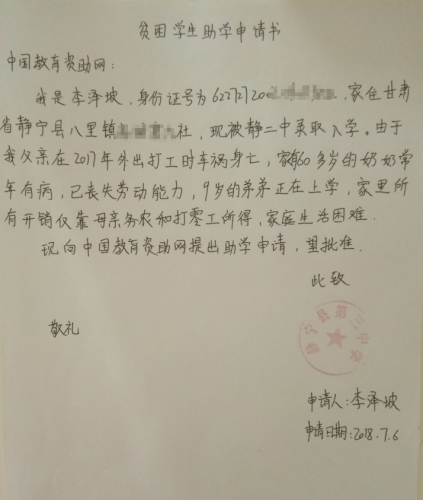 贫困学生助学申请书
中国教育资助网：
我是李泽坡，身份证号为6227272000，家住甘肃
省静宁县八里镇社，现被静二中录取入学。由于
我父亲在2017年外出打工时车祸身亡，家有60多岁的奶奶常
年有病，已丧失劳动能力，9岁的弟弟正在上学，家里所
有开销仅靠母亲务农和打零工所得，家庭生活困难.
现向中国教育资助网提出助学申请，望批准.
此致
敬礼
静宁县第二中学
申请人：李泽坡
申请日期：2018.7.6